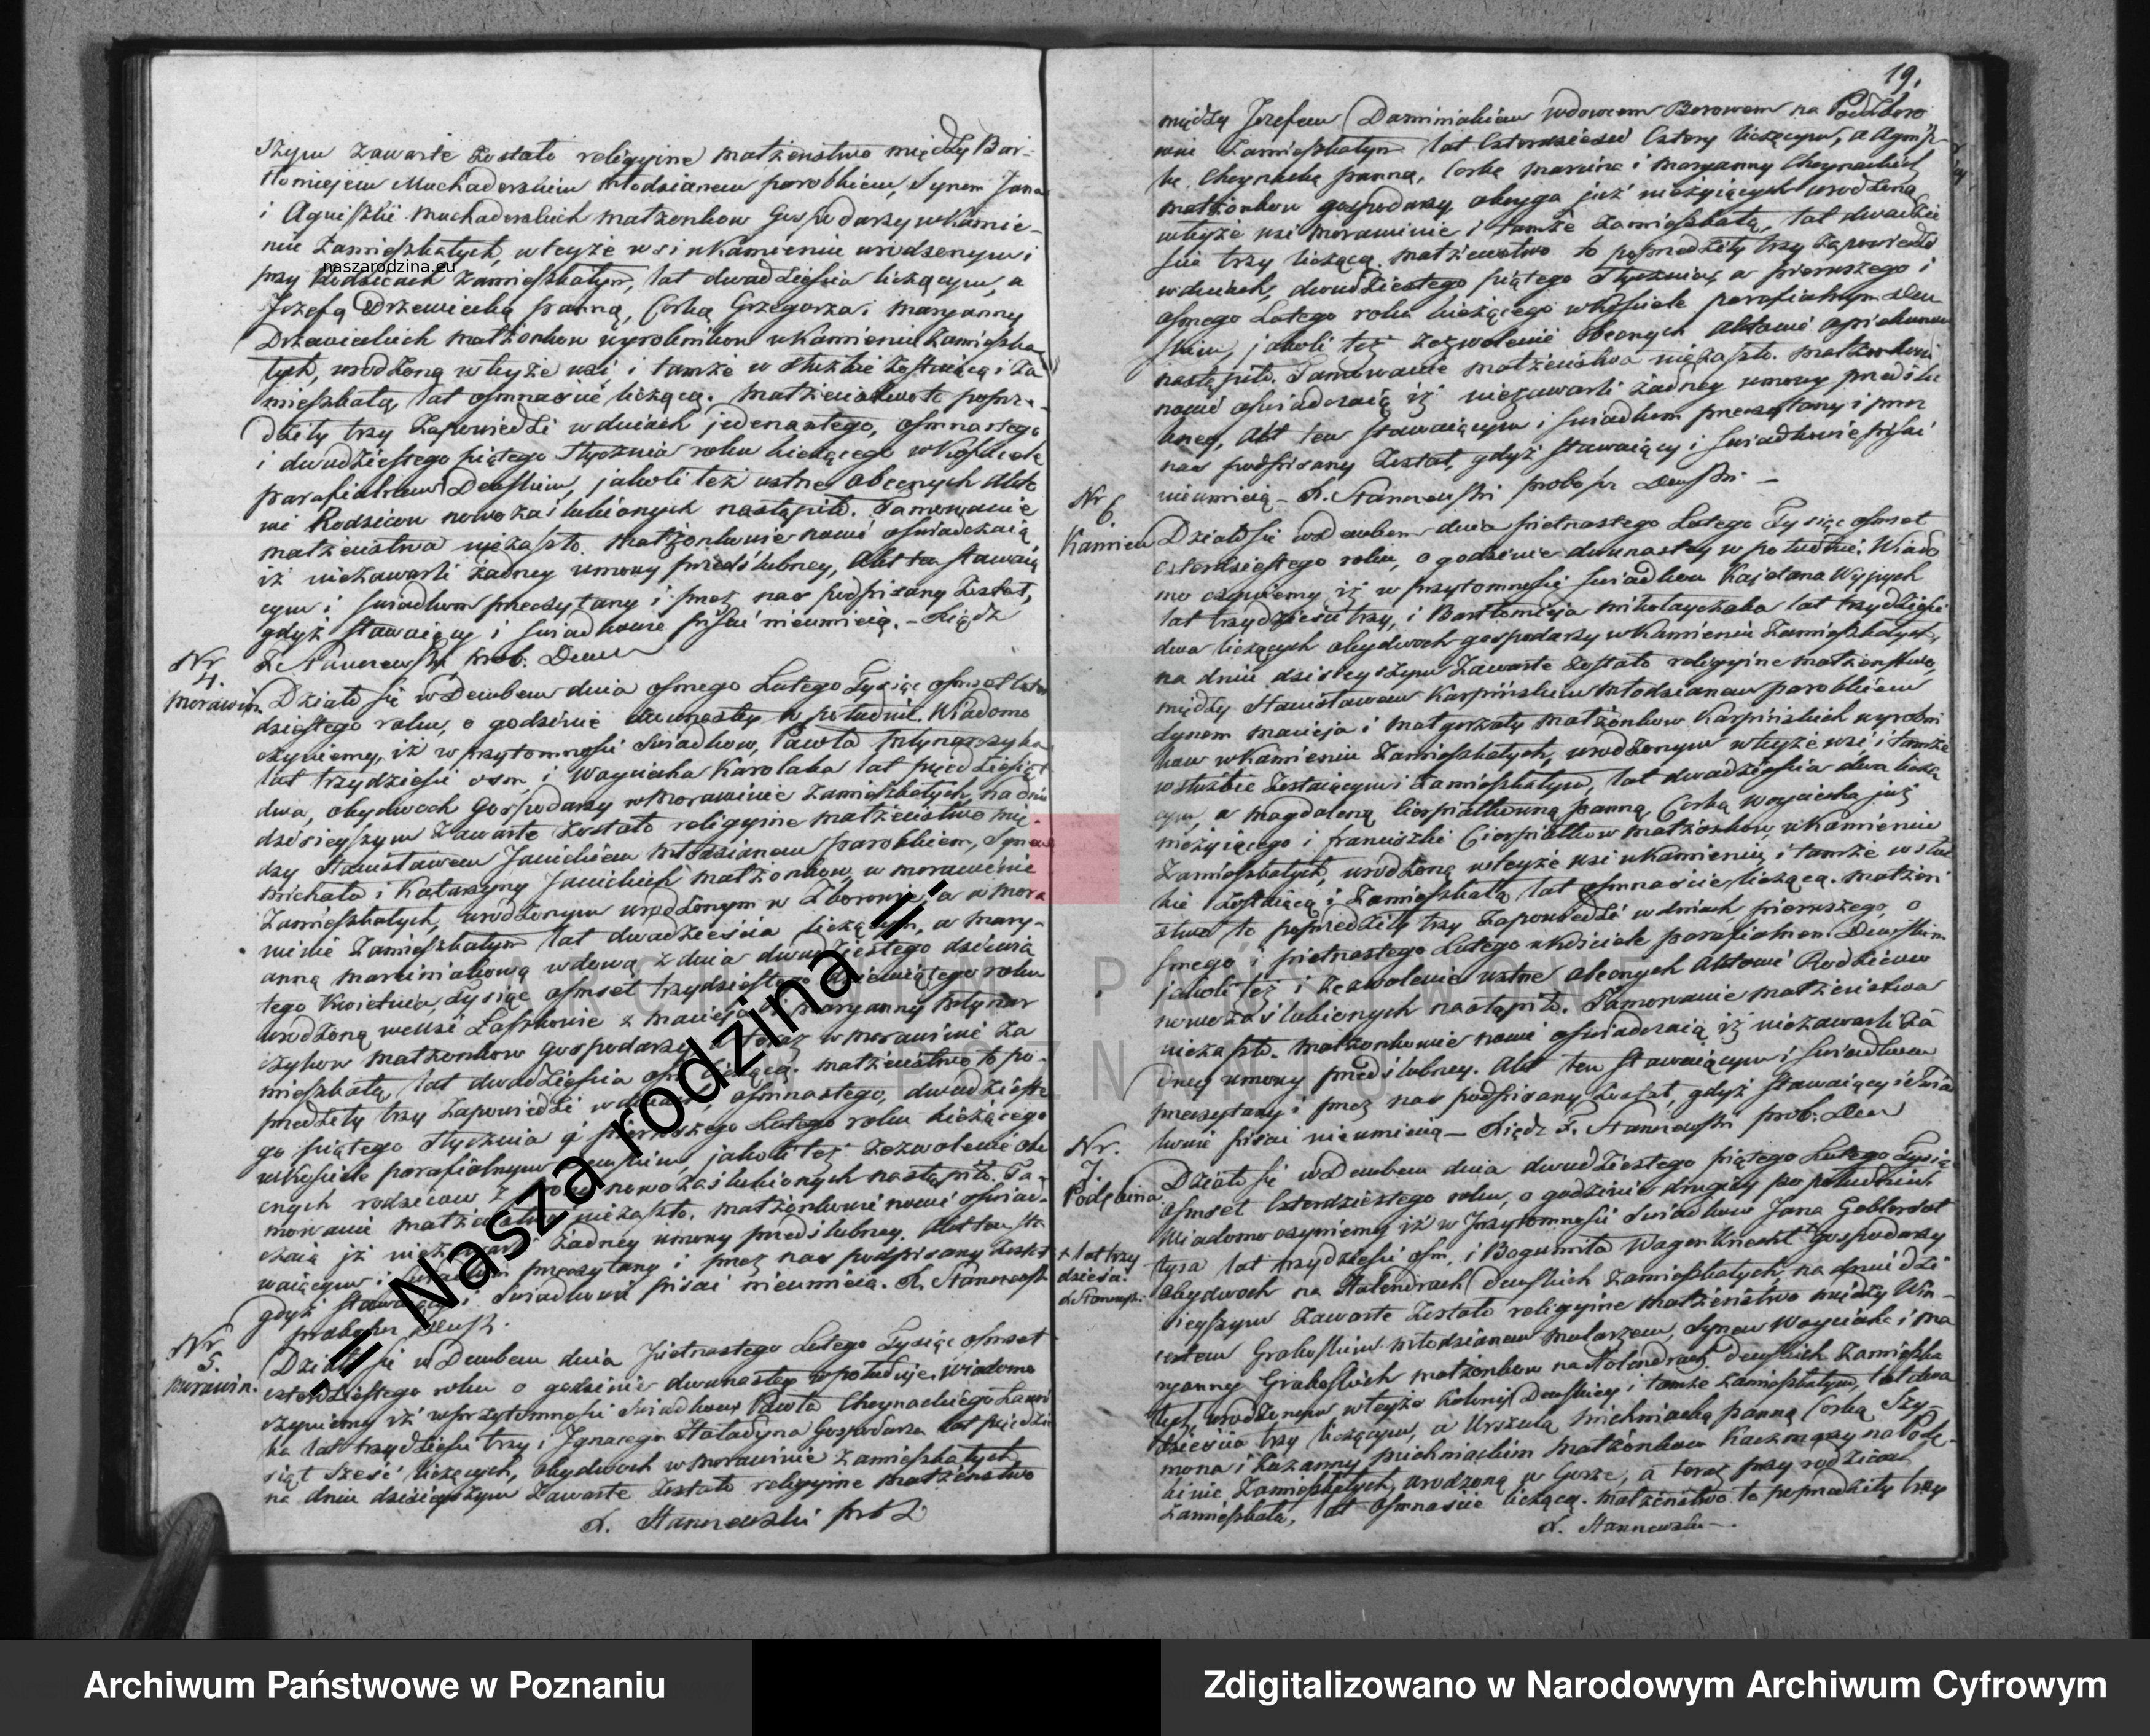 szym zawarte zostało religijne małżeństwo między Bar-
tłomiejem Muchaderskim młodzianem parobkiem, Synem Jana
i Agnieszki Muchaderskich małżonkow Gospodarzy w Kamie-
niu zamieszkałych, w teyże wsi w Kamieniu urodzonym i
naszarodzina.eu
przy Rodzicach zamieszkałym, lat dwadzieścia liczącym, a
Jozefą Drzewiecką panną, Corką Grzegorza i Maryanny
Drzewieckich małżonkow wyrobnikow w Kamieniu zamieszka-
łych, urodzoną w teyże wsi i tamże w służbie zostaiącą i za
mieszkałą, lat ośmnaście liczącą. Małżeństwo to poprze-
dziły trzy zapowiedzi w dniach jedenastego, ośmnastego
i dwudziestego piątego Stycznia roku bieżącego w Kościele
parafialnem Dembskim, jakoli też ustne obecnych Akto
wi Rodzicow nowozaślubionych nastąpiło. Tamowanie
małżeństwa niezaszło. Małżonkowie nowi oświadczaią
iż niezawarli żadney umowy przedślubney, Akt ten stawaią
cym i świadkom przeczytany i przez nas podpisany został,
gdyż stawaiący i świadkowie pisać nieumieią. - Xiądz
prob. Dem
Nr
4.
Morawin
Działo się w Dembem dnia osmego Lutego Tysiąc osmset czter
dziestego roku, o godzinie dwunastey w południe. Wiadomo
czyniemy, iż w przytomności świadkow, Pawła
lat trzydzieści osm, i Woyciecha Karolaka lat pięćdziesiąt
dwa, obydwoch Gospodarzy w Morawinie zamieszkałych, na dniu
dzisieyszym zawarte zostało religijne małżeństwo mię-
dzy Stanisławem Janickiem młodzianem parobkiem, Synem
Michała i Katarzyny Janickich małżonkow w Morawinie
zamieszkałych, urodzonym urodzonym w Zborowie, a w Mora
winie zamieszkałym lat dwadzieścia liczącym, a Mary-
anną Marciniakową wdową z dnia dwudziestego dziewią
tego Kwietnia, Tysiąc osmset trzydziestego dziewiątego roku
urodzoną we wsi Laszkowie z Macieja i Maryanny Młynar
czykow małżonkow gospodarzy, a teraz w Morawinie za
mieszkałą, lat dwadzieścia liczącą. Małżeństwo to po-
przedziły trzy zapowiedzi w dniach, ośmnastego, dwudzieste
go piątego Stycznia i pierwszego Lutego roku bieżącego
w Kościele parafialnym Dembskim, jakoli też zezwolenie obe
cnych rodzicow z nowozaślubionych nastąpiło. Ta-
mowanie małżeństwa niezaszło. Małżonkowie nowi oświad-
czaią iż niezawarli żadney umowy przedślubney. Akt ten sta
waiącym i świadkom przeczytany i przez nas podpisany został
gdyż stawaiący i świadkowie pisać nieumieią. X. Stanczewski
proboszcz Dembsk.
Nr
5.
Morawin.
Działo się w Dembem dnia Piętnastego Lutego Tysiąc osmset
czterdziestego roku o godzinie dwunastey w południe, wiadomo
czyniemy iż w przytomności świadkow Pawła Choynackiego
ka lat trzydzieści trzy, i Ignacego Gospodarza lat pięćdzie
siąt sześć liczących, obydwoch w Morawinie zamieszkałych
na dniu dzisieyszym zawarte zostało religijne małżeństwo
X. Stanczewski prob
-= Nasza rodzina =-
19.
między Jozefem Daminiakiem wdowcem Borowem na
zamieszkałym lat czterdzieści cztery liczącym, a Agnisz-
ką Choynacką panną, Corką Marcina i Maryanny Choynackich
małżonkow gospodarzy, oboyga już nieżyiących urodzoną
w teyże wsi Morawinie i tamże zamieszkałą, lat dwadzie
ścia trzy liczącą. Małżeństwo to poprzedziły trzy zapowiedzi
w dniach, dwudziestego piątego Stycznia, a pierwszego i
osmego Lutego roku bieżącego w Kościele parafialnym Dem
skim, jakoli też zezwolenie obecnych Aktowi opiekunow
nastąpiło. Tamowanie małżeństwa niezaszło. Małżonkowie
nowi oświadczaią iż niezawarli żadney umowy przedślu
bney, Akt ten stawaiącym i świadkom przeczytany i przez
nas podpisany został, gdyż stawaiący i świadkowie pisać
nieumieią - X. Stanczewski proboszcz Dembski -
Nr
6.
Kamień
Działo się w Dembem dnia piętnastego Lutego Tysiąc osmset
czterdziestego roku, o godzinie dwunastey w południe. Wiado
mo czyniemy iż w przytomności świadkow Kajetana
lat trzydzieści trzy, i Bartłomieja Mikołayczaka lat trzydzieści
dwa liczących obydwoch gospodarzy w Kamieniu zamieszkałych,
na dniu dzisieyszym zawarte zostało religijne małżeństwo,
między Stanisławem Karpińskim młodzianem parobkiem
synem Macieja i Małgorzaty małżonkow Karpińskich wyrobni
kow w Kamieniu zamieszkałych, urodzonym w teyże wsi i tamże
w służbie zostaiącym i zamieszkałym, lat dwadzieścia dwa liczą
cym, a Magdaleną Cierpiałkowną panną, Corką Woyciecha już
nieżyiącego i Franciszki Cierpiałkow małżonkow w Kamieniu
zamieszkałych, urodzoną w teyże wsi w Kamieniu, i tamże w służ
bie zostaiącą i zamieszkałą lat ośmnaście liczącą. Małżeń
stwo to poprzedziły trzy zapowiedzi w dniach pierwszego, o
smego i piętnastego Lutego w Kościele parafialnem Dembskim
jakoli też i zezwolenie ustne obecnych Aktowi Rodzicow
nowozaślubionych nastąpiło. Tamowanie małżeństwa
niezaszło. Małżonkowie nowi oświadczaią iż niezawarli ża
dney umowy przedślubney. Akt ten stawaiącym i świadkom
przeczytany i przez nas podpisany został, gdyż stawaiący i świad
kowie pisać nieumieią - Xiądz F. Stanczewski prob. Dem
Nr.
7.
Podębina
Działo się w Dembem dnia dwudziestego piątego Lutego Tysiąc
osmset czterdziestego roku, o godzinie drugiey po południu
Wiadomo czyniemy iż w przytomności świadkow Jana
lat trzydzieści ośm, i Bogumiła Wagenknecht + Gospodarzy
+ lat trzy
dzieści.
X. Stanczewski.
obydwoch na Holendrach Dembskich zamieszkałych, na dniu dzi
sieyszym zawarte zostało religijne małżeństwo między Win-
centem Graboskim młodzianem malarzem, Synem Woyciecha i Ma
ryanny Graboskich małżonkow na Holendrach Dembskich zamieszka
łych, urodzonym w teyże Kolonij Dembskiey i tamże zamieszkałym, lat dwa
dzieścia trzy liczącym, a Urszulą Michniacką panną Corką Szy-
mona i Zuzanny Michniackim małżonkow Karczmarzy na Podę-
binie zamieszkałych, urodzoną w Gorze, a teraz przy rodzicach
zamieszkałą, lat ośmnaście liczącą. Małżeństwo to poprzedziły trzy
X. Stanczewski
ARCHIWUM PAŃSTWOWE
W POZNANIU
Archiwum Państwowe w Poznaniu
Zdigitalizowano w Narodowym Archiwum Cyfrowym